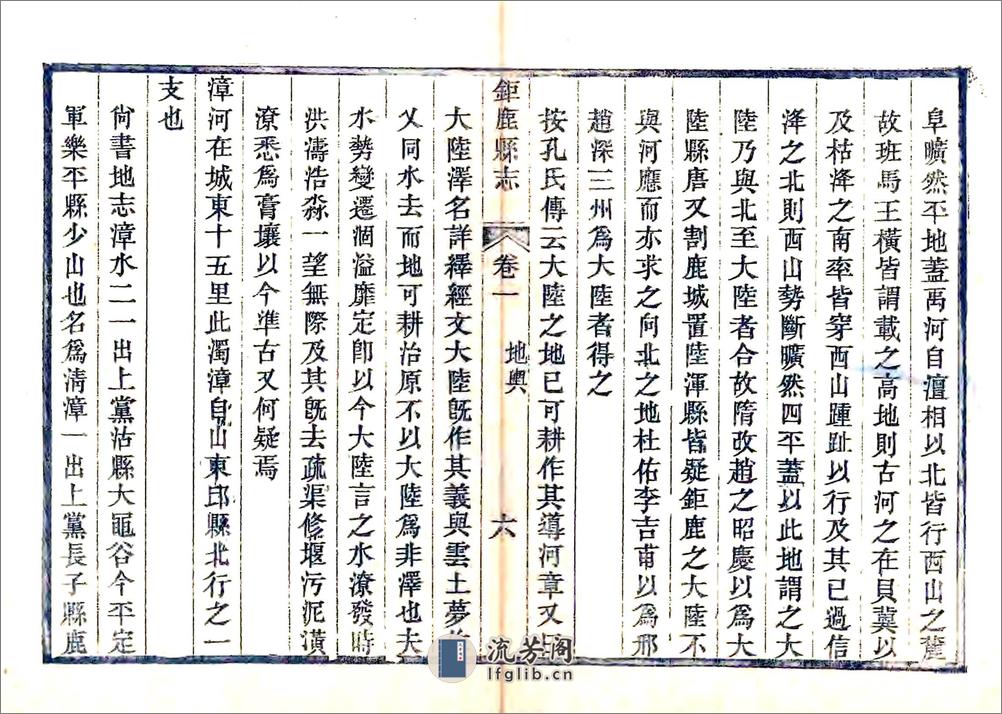 阜曠然平地蓋禹河自澶相以北皆行西山之麓
故班馬王横皆謂載之高地則古河之在貝冀以
及枯洚之南率皆穿西山踵趾以行及其已過信
洚之北則西山勢斷曠然四平蓋以此地謂之大
陸乃與北至大陸者合故隋改趙之昭慶以爲大
陸縣唐又割鹿城置陸渾縣皆疑鉅鹿之大陸不
與河應而亦求之向北之地杜佑李吉甫以爲邢
趙深三州爲大陸者得之
按孔氏傳云大陸之地已可耕作其導河章又
鉅鹿縣志
卷一
地輿
六
大陸澤名詳繹經文大陸旣作其義與雲土夢
乂同水去而地可耕治原不以大陸爲非澤也夫
水勢變遷涸溢靡定卽以今大陸言之水潦發時
洪濤浩淼一望無際及其旣去疏渠修堰污泥潢
潦悉爲膏壤以今準古又何疑焉
漳河在城東十五里此濁漳自山東邱縣北行之一
支也
尙書地志漳水二一出上黨沾縣大黽谷今平定
軍樂平縣少山也名爲清漳一出上黨長子縣鹿
流芳閣
lfglib.cn